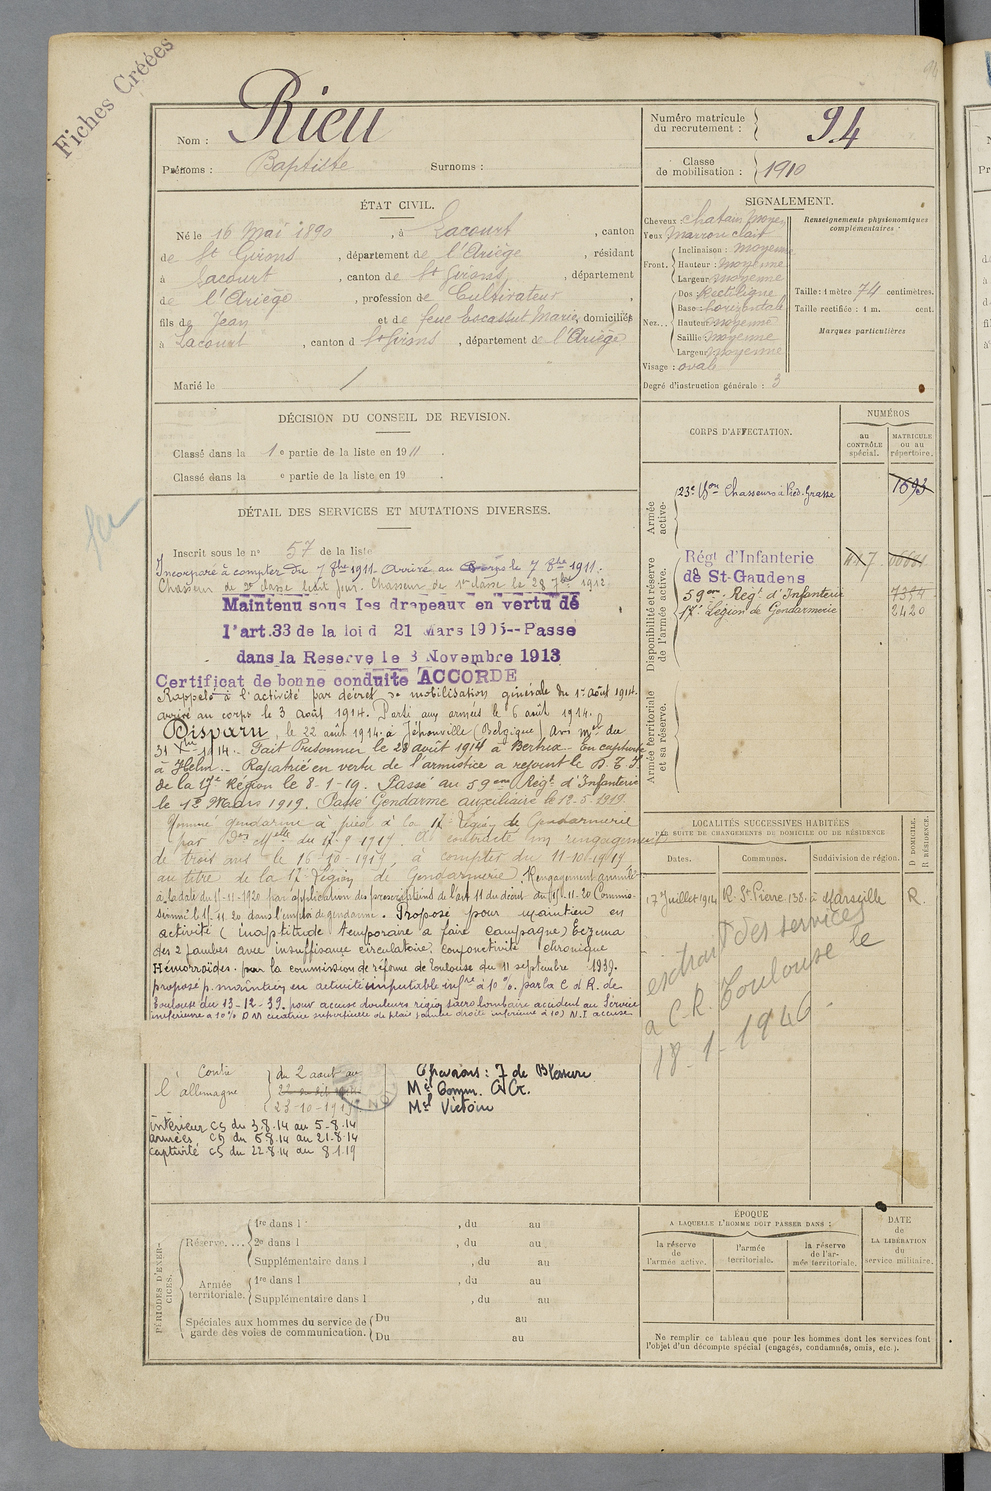 Fiches Créées
Nom : Rieu
Prénoms : Baptiste Surnoms :
Numéro matricule du recrutement : 94
Classe de mobilisation : 1910
ÉTAT CIVIL.
Né le 16 Mai 1890, à Lacourt, canton
de St Girons, département de l'Ariège, résidant
à Lacourt, canton de St Girons, département
de l'Ariège, profession de Cultivateur,
fils de Jean et de feue Escassut Marie, domiciliés
à Lacourt, canton d St Girons, département de l'Ariège
Marié le /
SIGNALEMENT.
Cheveux : chatain moyen
Yeux Marron clair
Front. Inclinaison : moyenne
Hauteur : moyenne
Largeur moyenne
Nez... Dos Rectiligne
Base horizontale
Hauteur moyenne
Saillie moyenne
Largeur moyenne
Visage : ovale
Degré d'instruction générale : 3
Renseignements physionomiques complémentaires :
Taille : 1 mètre 74 centimètres.
Taille rectifiée : 1 m. cent.
Marques particulières
DÉCISION DU CONSEIL DE REVISION.
Classé dans la 1e partie de la liste en 1911.
Classé dans la e partie de la liste en 19 .
DÉTAIL DES SERVICES ET MUTATIONS DIVERSES.
Inscrit sous le no 57 de la liste
Incorporé à compter du 7 8bre 1911. Arrivé au Corps le 7 8bre 1911.
Chasseur de 2e classe ledit jour. Chasseur de 1re classe le 28 7bre 1912
Maintenu sous les drapeaux en vertu de
l'art.33 de la loi d 21 Mars 1905--Passé
dans la Reserve le 8 Novembre 1913
Certificat de bonne conduite ACCORDE
Rappelé à l'activité par décret de mobilisation générale du 1er août 1914.
arrivé au corps le 3 août 1914. Parti aux armées le 6 août 1914.
Disparu, le 22 août 1914 à Jéhonville (Belgique) Avis mel du
31 Xbre 1914. Fait Prisonnier le 28 août 1914 à Bertrix. En captivité
à Helm. Rapatrié en vertu de l'armistice a rejoint le D.T.I.
de la 17e Région le 8-1-19. Passé au 59eme Régt d'Infanterie
le 1er Mars 1919. Passé Gendarme auxiliaire le 12-5-1919.
Nommé gendarme à pied à la 17e Légion de Gendarmerie
par Don Melle du 17-9-1919 A contracté un rengagement
de trois ans le 16-10-1919, à compter du 11-10-1919
au titre de la 17e Légion de Gendarmerie. Rengagement annulé
à la date du 15-11-1920 par application des prescriptions de l'art 11 du décret du 15-11-20 Commis-
sionné le 15-11-20 dans l'emploi de gendarme. Proposé pour maintien en
activité (inaptitude temporaire à faire campagne) Eczema
des 2 jambes avec insuffisance circulatoire, conjonctivite chronique
Hémorroïdes. par la commission de réforme de Toulouse du 11 septembre 1939.
proposé p. maintien en activité imputable infre à 10 % par la C d R. de
Toulouse du 13-12-39. pour accuse douleurs région sacro lombaire accident au Service
inférieure à 10% D M cicatrice superficielle de plaie jambe droite inférieure à 10% N.I accuse
Contre l'allemagne du 2 aout au
23-10-1919
intérieur CS du 3.8.14 au 5-8-14
armées, CS du 6.8.14 au 21-8-14
captivité CS du 22-8-14 au 8.1.19
Chevrons : 7 de Blessure
Mle Comm. G.G.
Mel Victoire
CORPS D'AFFECTATION.
NUMÉROS
au CONTRÔLE spécial.
MATRICULE ou au répertoire.
Armée active.
23e Bon Chasseurs à Pied. Grasse 1693
Disponibilité et réserve de l'armée active.
Régt d'Infanterie
de St-Gaudens
59eme Régt d'Infanterie 7384
17e Légion de Gendarmerie 2420
Armée territoriale et sa réserve.
LOCALITÉS SUCCESSIVES HABITÉES
PAR SUITE DE CHANGEMENTS DU DOMICILE OU DE RÉSIDENCE
Dates. Communes. Subdivision de région. D DOMICILE. R RÉSIDENCE.
17 Juillet 1914 R. St Pierre 138 à Marseille R.
extrait des services
à C.R. Toulouse le
18-1-1946
PÉRIODES D'EXERCICES.
Réserve.... 1re dans l , du au
2e dans l , du au
Supplémentaire dans l , du au
Armée territoriale. 1re dans l , du au
Supplémentaire dans l , du au
Spéciales aux hommes du service de garde des voies de communication. Du au
Du au
ÉPOQUE
A LAQUELLE L'HOMME DOIT PASSER DANS :
la réserve de l'armée active.
l'armée territoriale.
la réserve de l'armée territoriale.
DATE de LA LIBÉRATION du service militaire.
Ne remplir ce tableau que pour les hommes dont les services font
l'objet d'un décompte spécial (engagés, condamnés, omis, etc.).